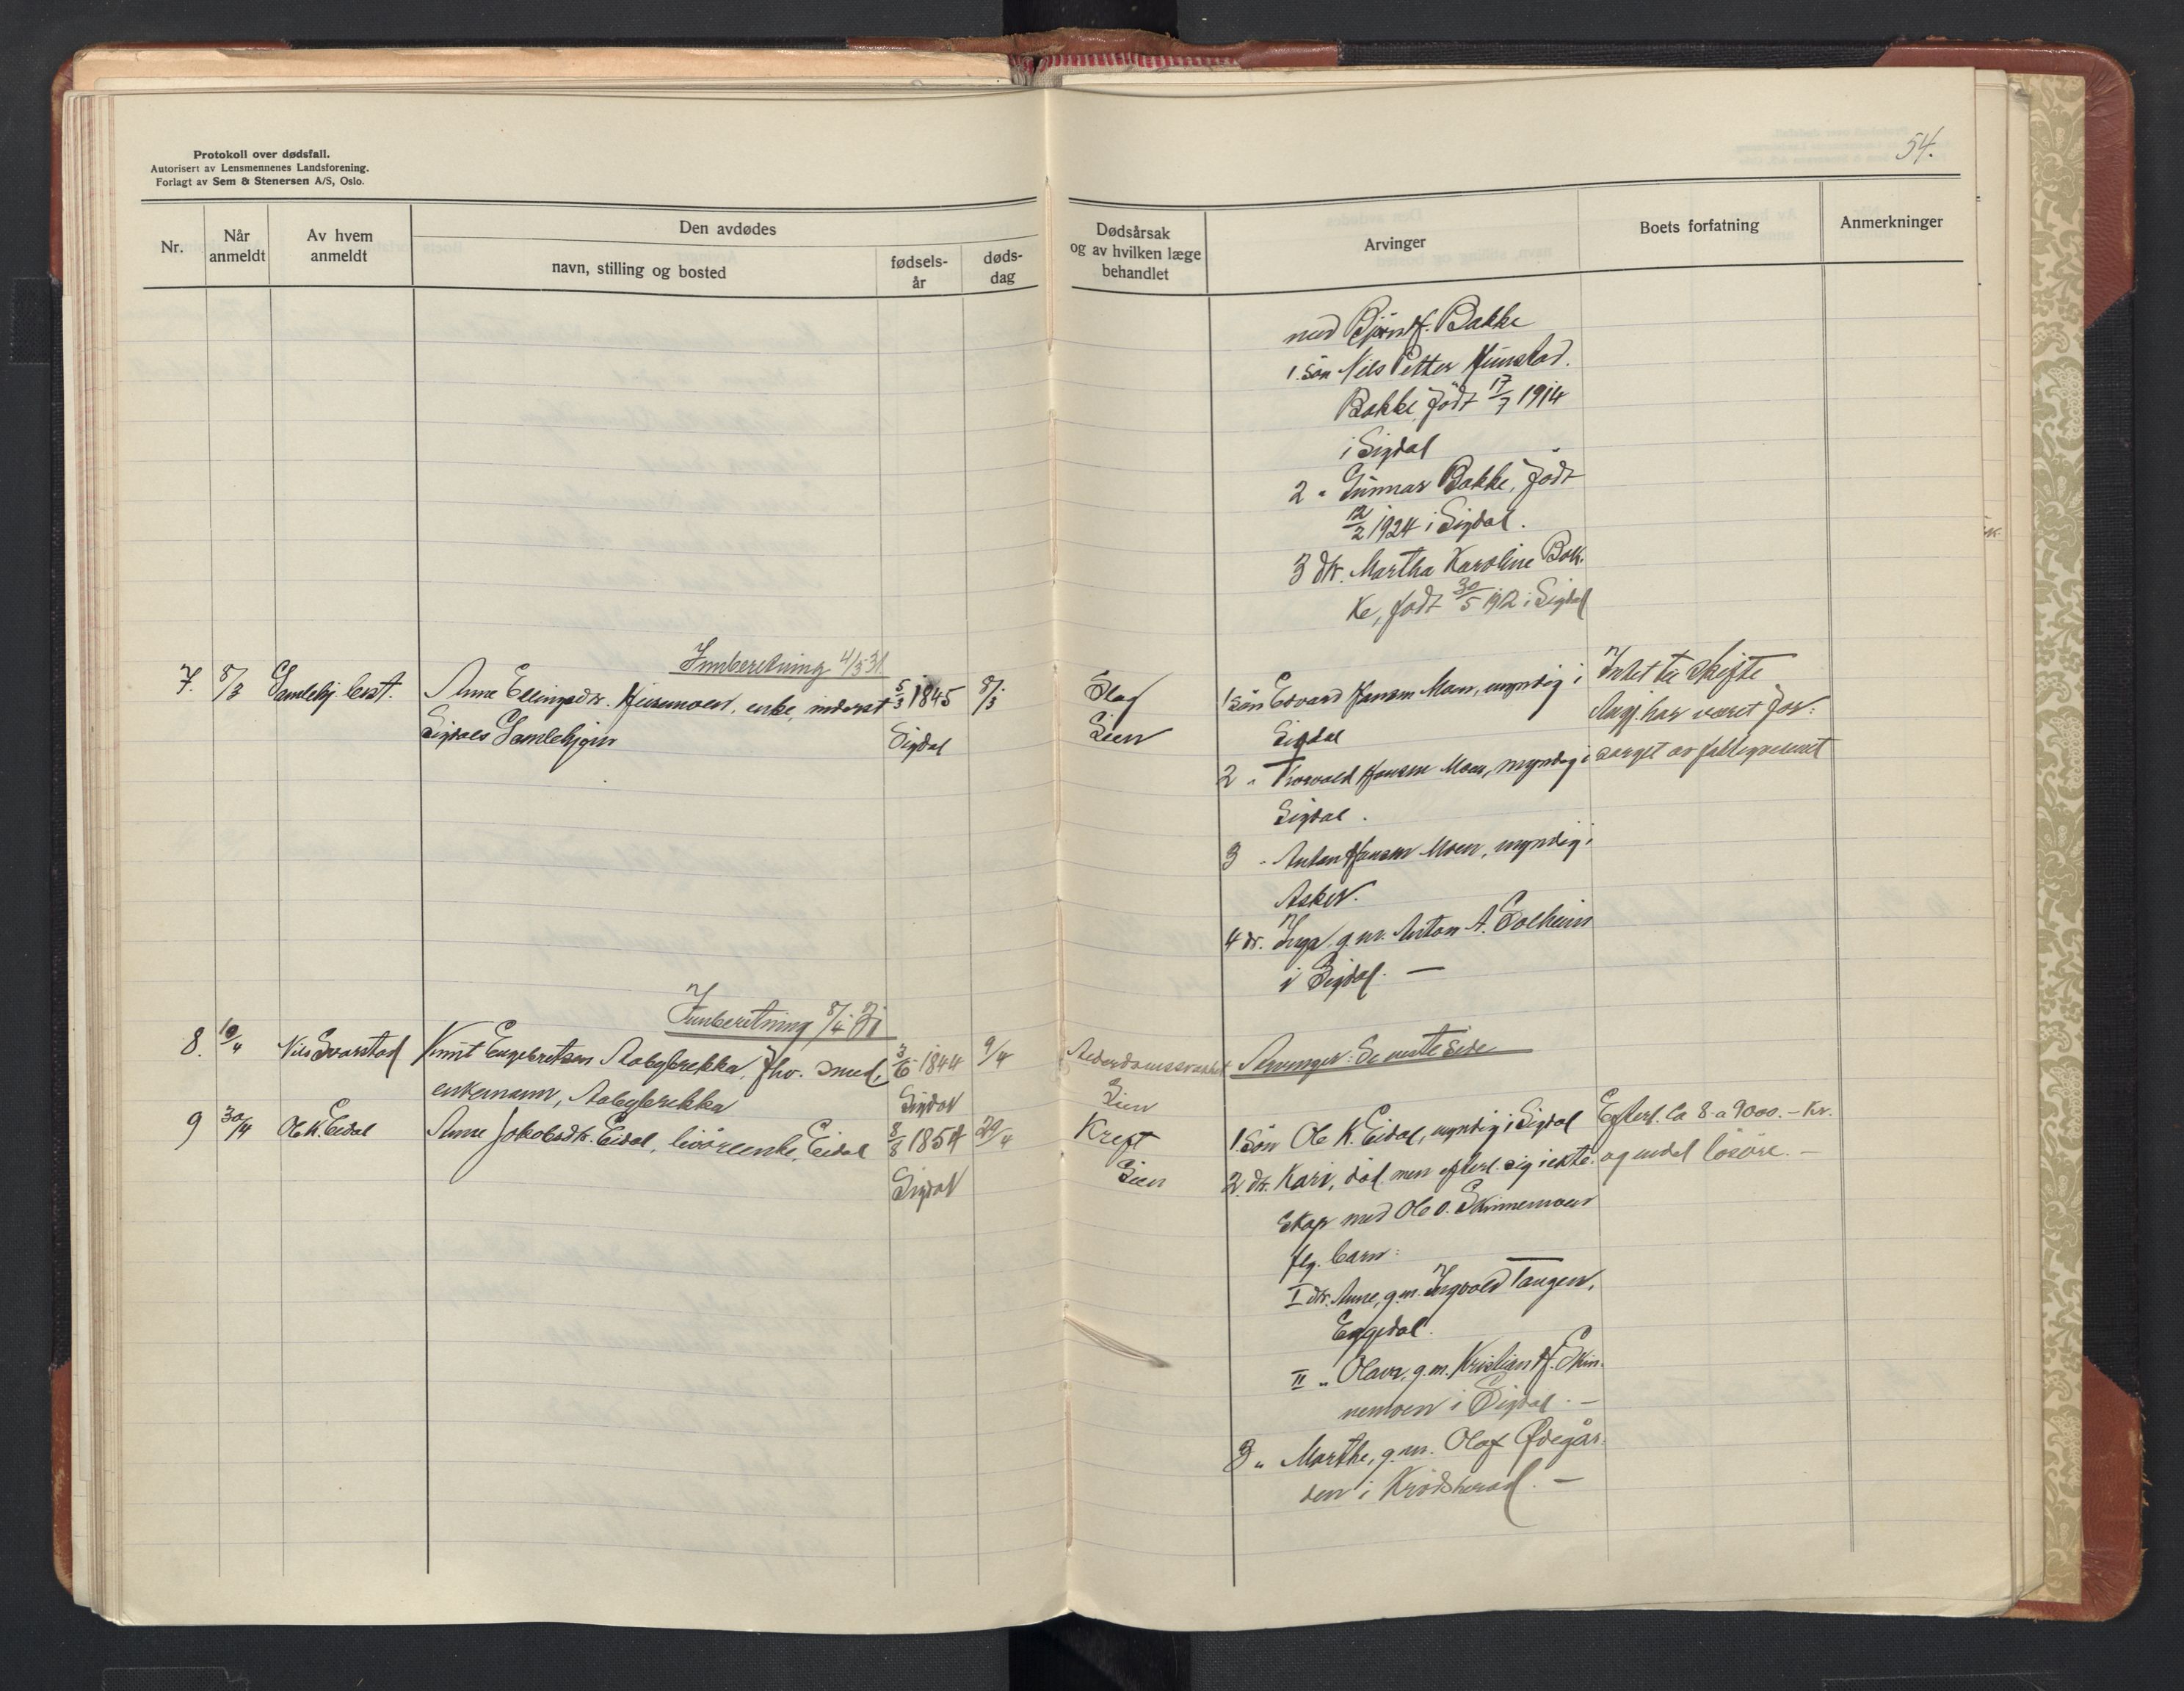 Protokoll over dødsfall.
Autorisert av Lensmennenes Landsforening.
Forlagt av Sem & Stenersen A/S, Oslo.
54.
Nr.
Når anmeldt
Av hvem anmeldt
Den avdødes
navn, stilling og bosted
fødsels-år
døds-dag
Dødsårsak og av hvilken læge behandlet
Arvinger
Boets forfatning
Anmerkninger
med Björn H. Bakke
1. sön Nils Petter
Bakke, födt 17/7 1914
i Sigdal
2 " Gunnar Bakke, födt
12/2 1924 i Sigdal.
3 dtr. Martha Karoline Bak-
ke, födt 30/5 1912 i Sigdal
Innberetning 4/5 31
7. 8/3 Gamlehj. best. Anne Ellingsdtr. enke, inderst 5/3 1845 8/3
Sigdals Gamlehjem Sigdal
Slag
Lien
1 sön Edvard Hansen Moen, myndig i
Sigdal
2 " Torvald Hansen Moen, myndig i
Sigdal.
3 " Anton Hansen Moen, myndig i
Asker.
4 dr. Inga, g.m. Anton A. Solheim
i Sigdal. —
Intet til skifte
har været for-
sorget av fattigvesenet
Innberetning 8/4 31
8. 10/4 Nils Svarstad Knut Engebretsen Aabybrekka, fhv. smed, 3/6 1844 9/4
enkemann, Aabybrekka Sigdal
Alderdomssvakhet
Lien
Arvinger: Se neste side
9 30/4 Ole K. Eidal Anne Jakobsdtr. Eidal, livöreenke, Eidal 8/8 1854 29/4
Sigdal
Kreft
Lien
1. Sön Ole K. Eidal, myndig i Sigdal
2. dtr. Kari, död men efterl. sig i ekte-
skap med Ole O. Skinnemoen
flg. barn:
I dtr. Anne, g.m. Ingvald Tangen,
Eggedal.
II " Olava, g.m. Kristian H. Skin-
nemoen i Sigdal. —
3 " Marthe, g.m. Olaf Ødegår-
den i Krödsherad. —
Efterl. ca 8 a 9000.- kr.
og endel lösöre. —